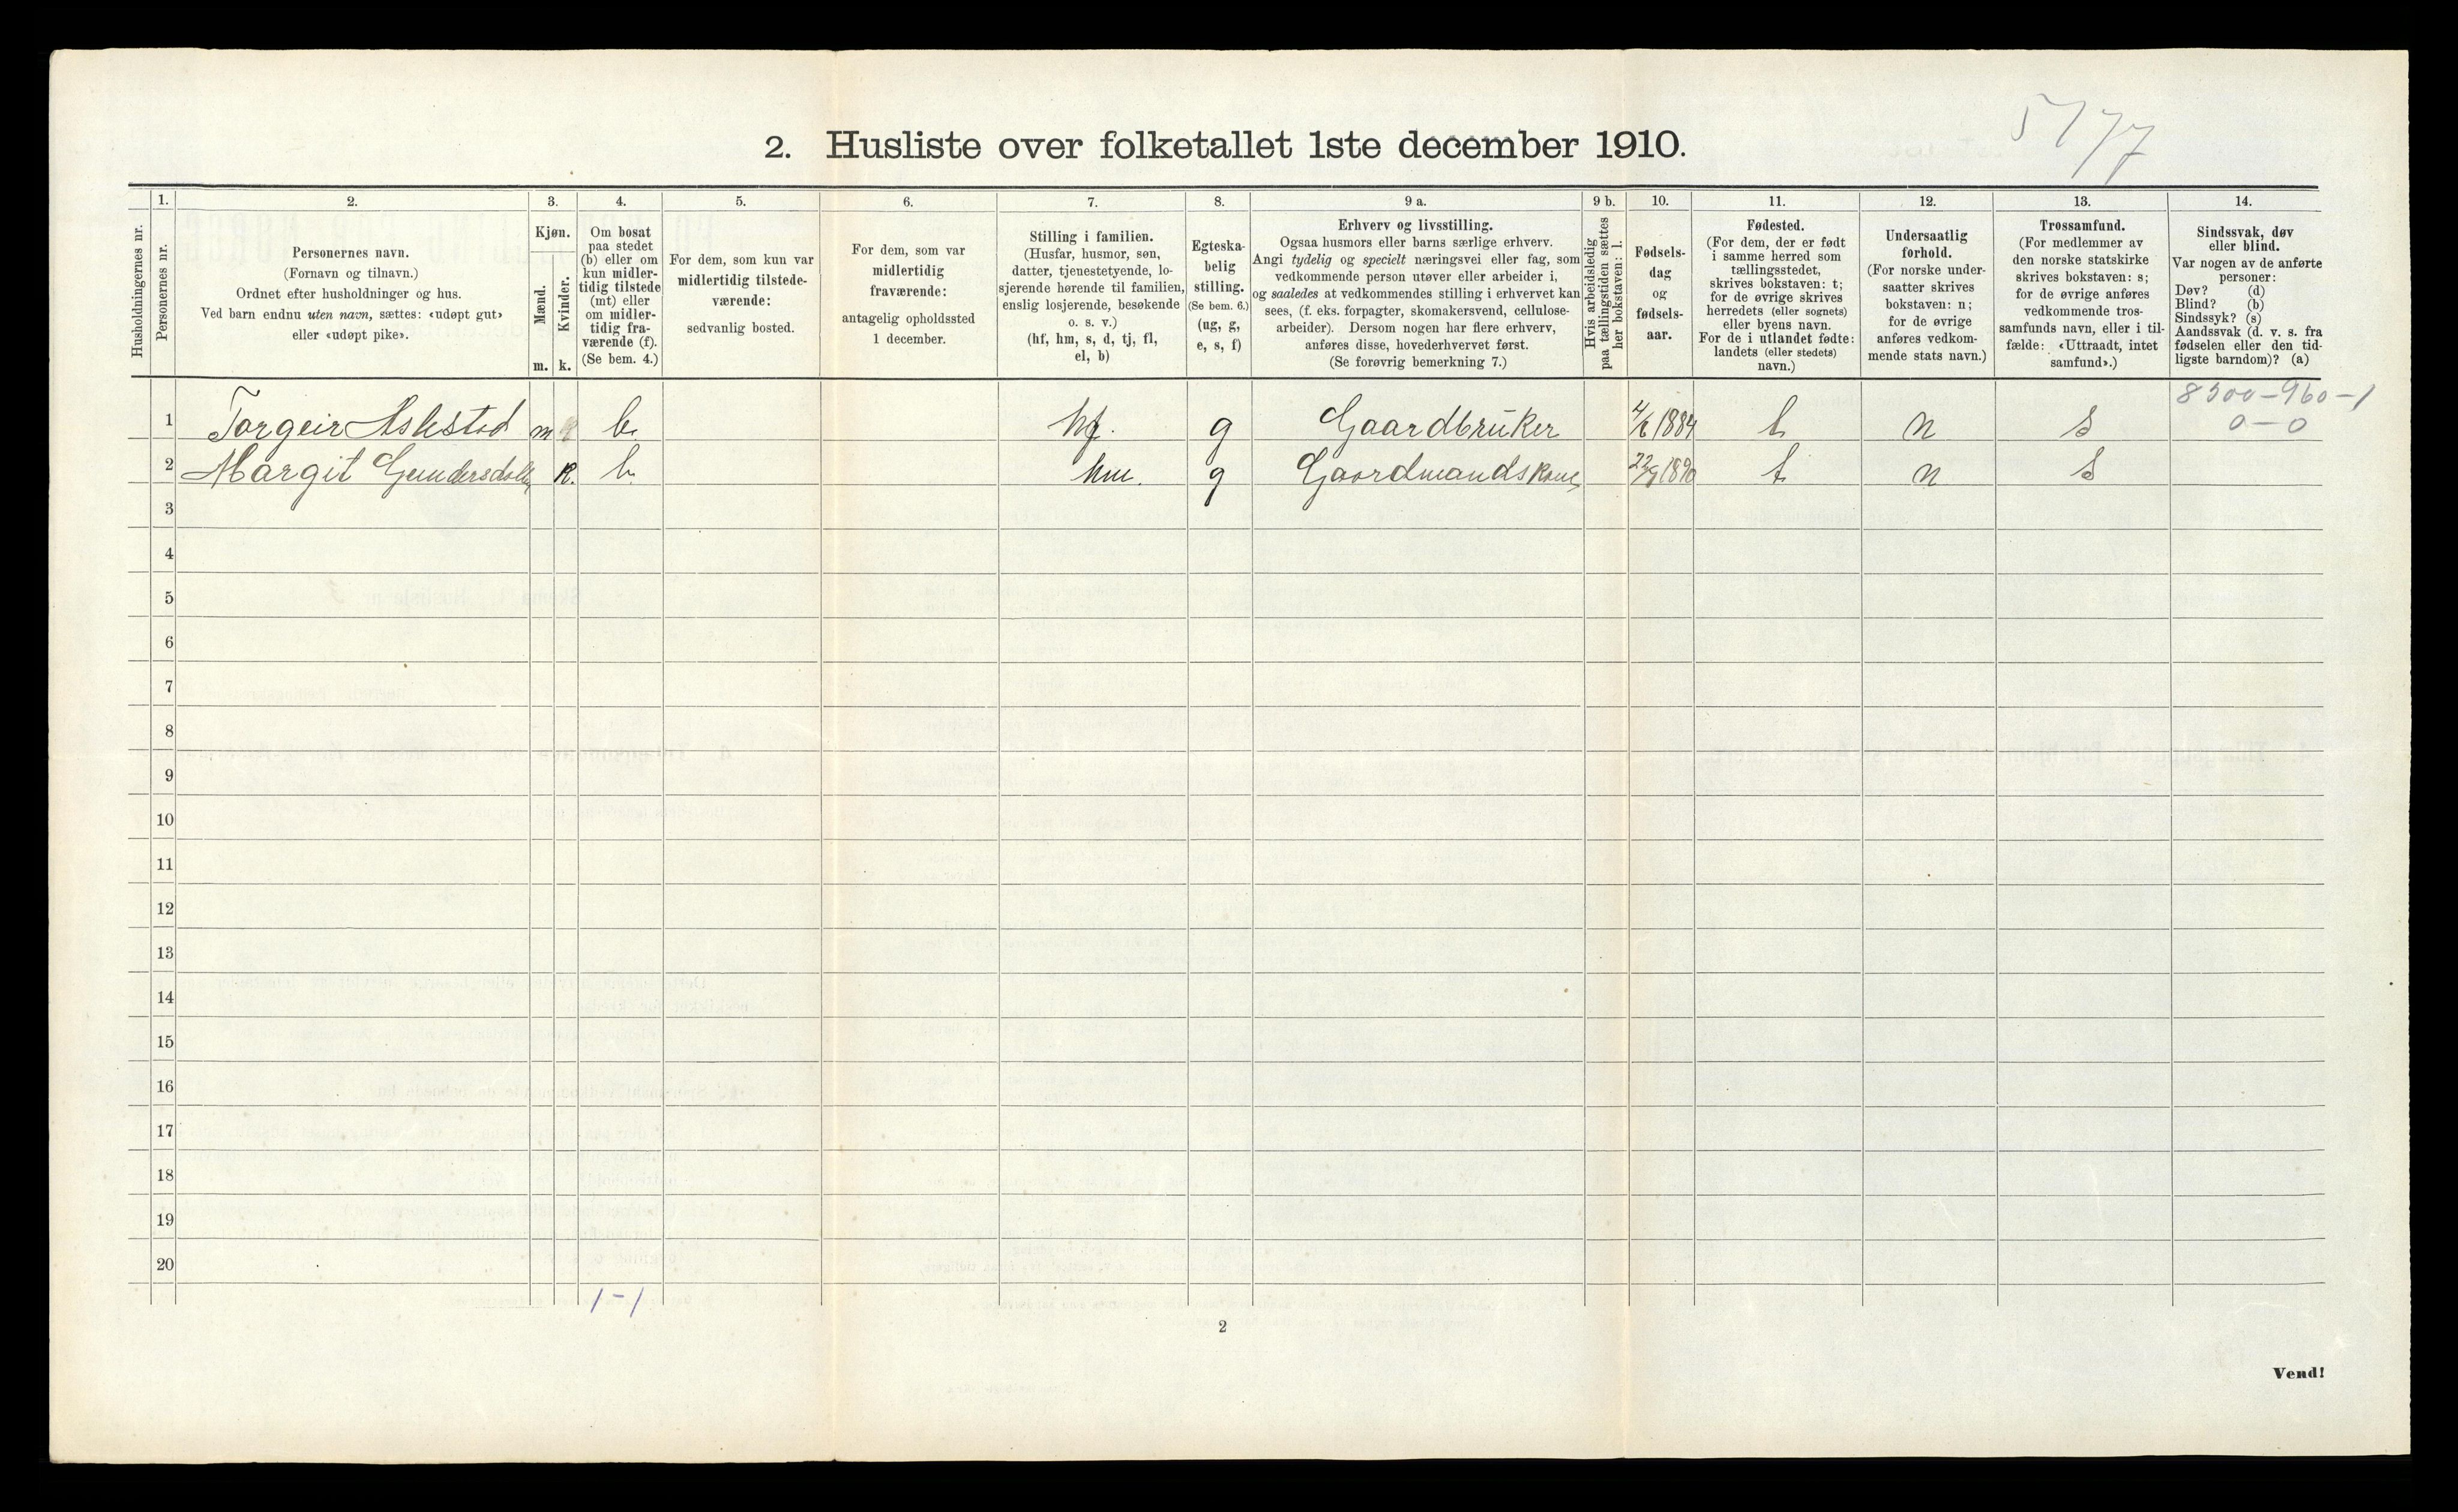 5177
2. Husliste over folketallet 1ste december 1910.
Husholdningernes nr.
1.
Personernes nr.
2.
Personernes navn.
(Fornavn og tilnavn.)
Ordnet efter husholdninger og hus.
Ved barn endnu uten navn, sættes: «udøpt gut»
eller «udøpt pike».
3.
Kjøn.
Mænd.
Kvinder.
m. k.
4.
Om bosat
paa stedet
(b) eller om
kun midler-
tidig tilstede
(mt) eller
om midler-
tidig fra-
værende (f).
(Se bem. 4.)
5.
For dem, som kun var
midlertidig tilstede-
værende:
sedvanlig bosted.
6.
For dem, som var
midlertidig
fraværende:
antagelig opholdssted
1 december.
7.
Stilling i familien.
(Husfar, husmor, søn,
datter, tjenestetyende, lo-
sjerende hørende til familien,
enslig losjerende, besøkende
o. s. v.)
(hf, hm, s, d, tj, fl,
el, b)
8.
Egteska-
belig
stilling.
(Se bem. 6.)
(ug, g,
e, s, f)
9 a.
Erhverv og livsstilling.
Ogsaa husmors eller barns særlige erhverv.
Angi tydelig og specielt næringsvei eller fag, som
vedkommende person utøver eller arbeider i,
og saaledes at vedkommendes stilling i erhvervet kan
sees, (f. eks. forpagter, skomakersvend, cellulose-
arbeider). Dersom nogen har flere erhverv,
anføres disse, hovederhvervet først.
(Se forøvrig bemerkning 7.)
9 b.
Hvis arbeidsledig
paa tællingstiden sættes
her bokstaven: l.
10.
Fødsels-
dag
og
fødsels-
aar.
11.
Fødested.
(For dem, der er født
i samme herred som
tællingsstedet,
skrives bokstaven: t;
for de øvrige skrives
herredets (eller sognets)
eller byens navn.
For de i utlandet fødte:
landets (eller stedets)
navn.)
12.
Undersaatlig
forhold.
(For norske under-
saatter skrives
bokstaven: n;
for de øvrige
anføres vedkom-
mende stats navn.)
13.
Trossamfund.
(For medlemmer av
den norske statskirke
skrives bokstaven: s;
for de øvrige anføres
vedkommende tros-
samfunds navn, eller i til-
fælde: «Uttraadt, intet
samfund».)
14.
Sindssvak, døv
eller blind.
Var nogen av de anførte
personer:
Døv? (d)
Blind? (b)
Sindssyk? (s)
Aandssvak (d. v. s. fra
fødselen eller den tid-
ligste barndom)? (a)
8500-960-1
1 Torgeir Askestad m b. hf. g Gaardbruker 4/6 1884 t n s 0-0
2 Margit k. b. hm. g Gaardmandskone 1890 t n s
3
4
5
6
7
8
9
10
11
12
13
14
15
16
17
18
19
20
1-1
2
Vend!